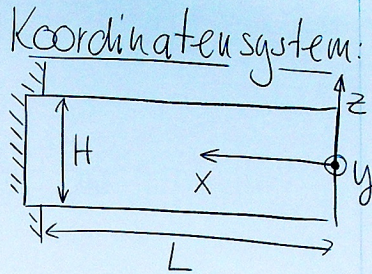 Koordinatensystem:
z
H
x
y
L